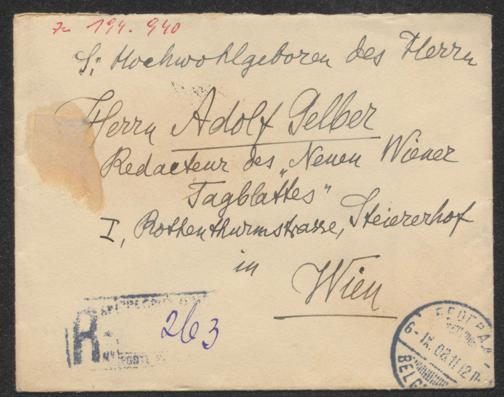 In 194.940
S: Hochwohlgeboren des Herrn
Herrn Adolf Gelber
Redacteur des „Neuen Wiener
Tagblattes"
I, Rothenthurmstrasse, Steiererhof
in
Wien
R
263
БЕОГРАД
6. IX. 02. 11
BELG